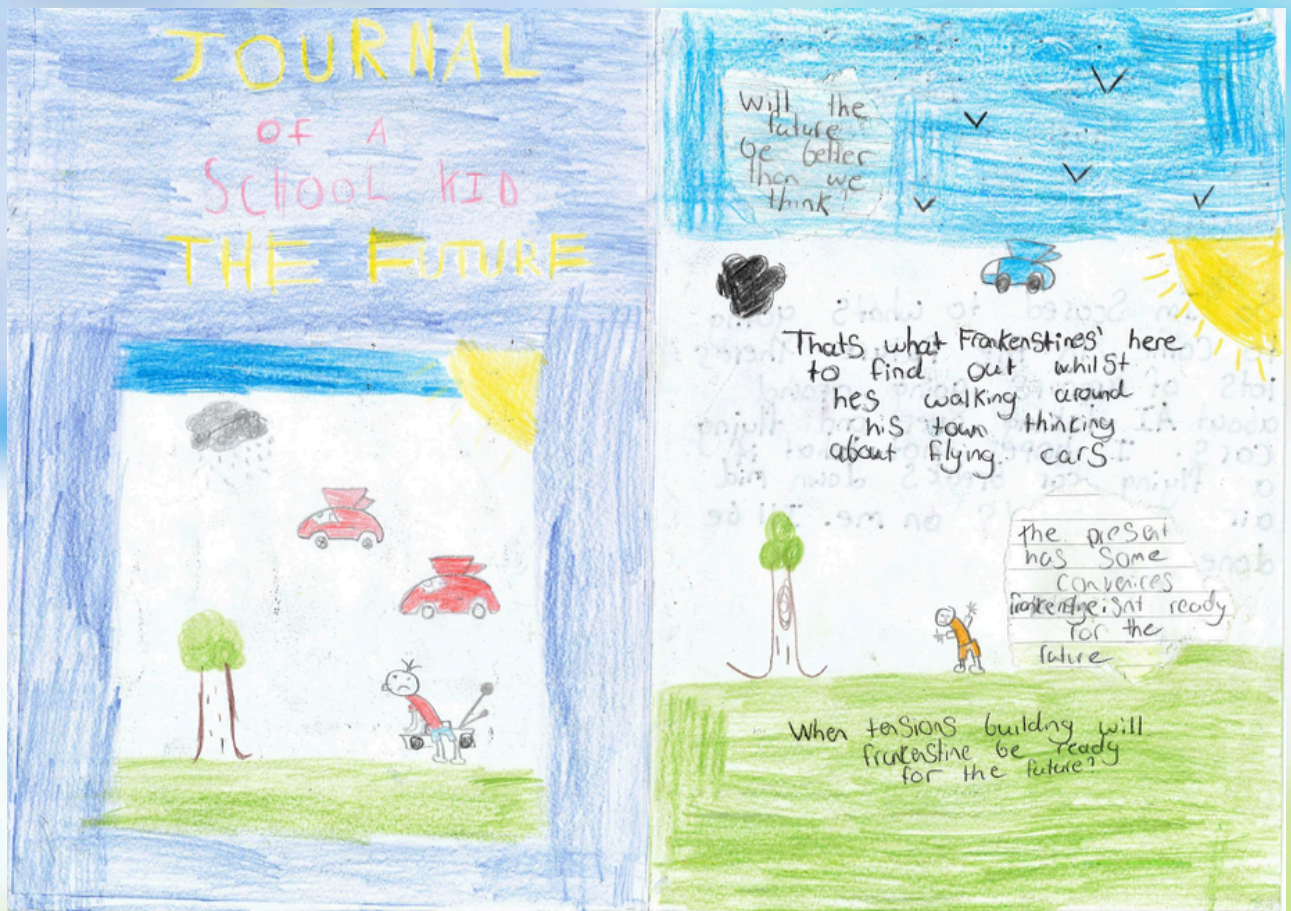 JOURNAL
OF A
SCHOOL KID
THE FUTURE
Will the
future
be better
then we
think?
Thats what Frankenstines' here
to find out whilst
hes walking around
his town thinking
about flying cars
the present
has some
convenices
ready
for the
future
When tensions building will
frankenstine be ready
for the future?